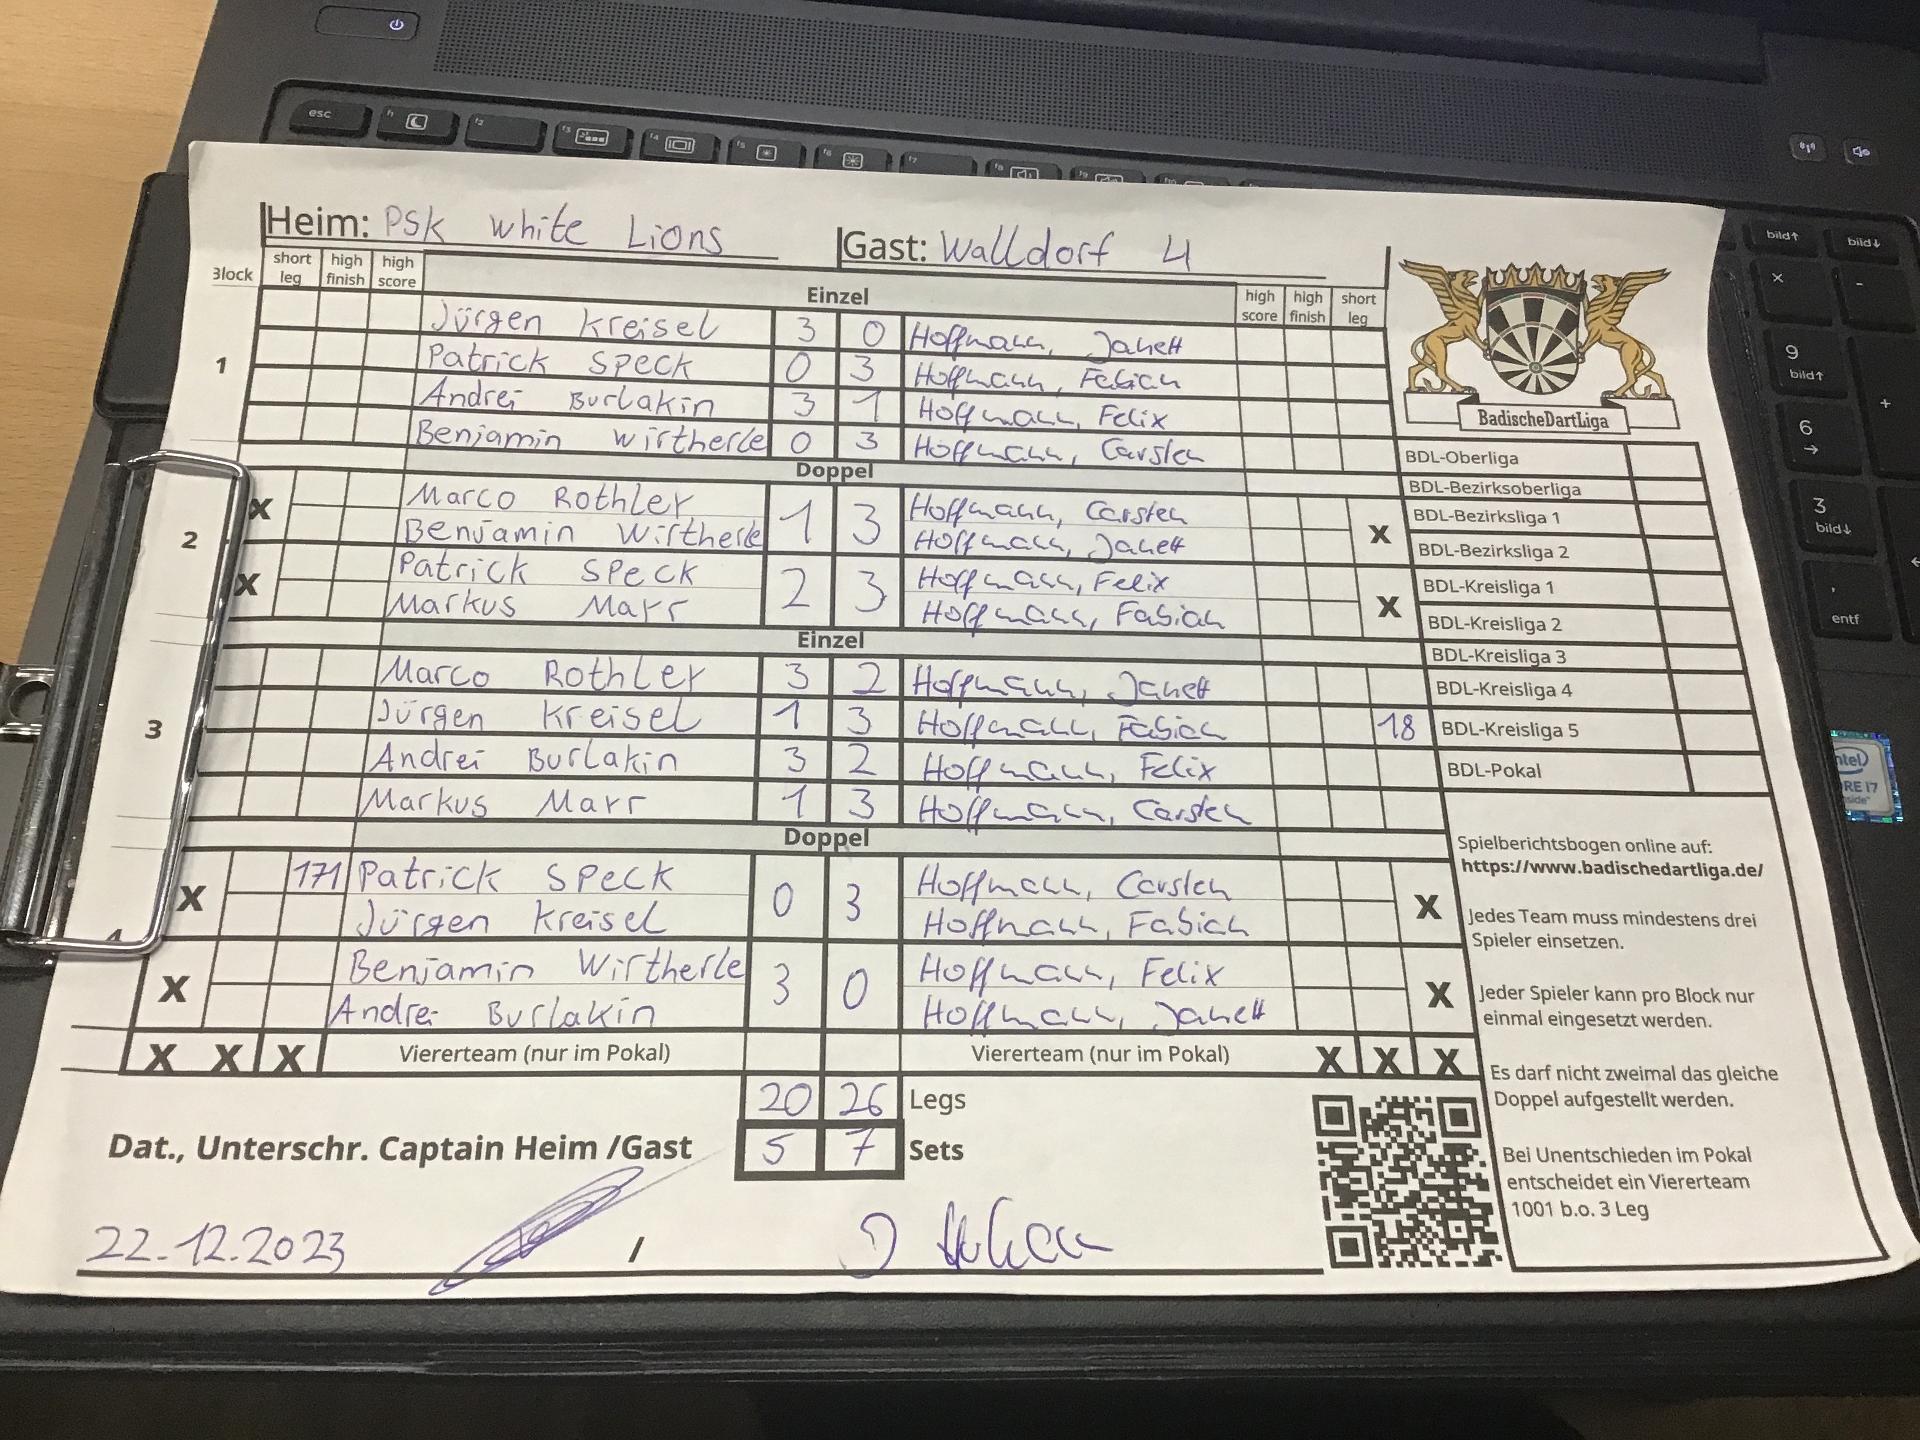 esc
Heim: PSK white Lions Gast: Walldorf 4
Block short leg high finish high score Einzel high score high finish short leg
Jürgen Kreisel 3 0 Hoffmann, Janett
1 Patrick Speck 0 3 Hoffmann, Fabian
Andrei Burlakin 3 1 Hoffmann, Felix
Benjamin Wirtherle 0 3 Hoffmann, Carsten
Doppel
2
X Marco Rothler 1 3 Hoffmann, Carsten X
Benjamin Wirtherle Hoffmann, Janett
X Patrick Speck 2 3 Hoffmann, Felix X
Markus Marr Hoffmann, Fabian
Einzel
3
Marco Rothler 3 2 Hoffmann, Janett
Jürgen Kreisel 1 3 Hoffmann, Fabian 18
Andrei Burlakin 3 2 Hoffmann, Felix
Markus Marr 1 3 Hoffmann, Carsten
Doppel
4
X 171 Patrick Speck 0 3 Hoffmann, Carsten X
Jürgen Kreisel Hoffmann, Fabian
X Benjamin Wirtherle 3 0 Hoffmann, Felix X
Andrei Burlakin Hoffmann, Janett
X X X Viererteam (nur im Pokal) Viererteam (nur im Pokal) X X X
20 26 Legs
5 7 Sets
Dat., Unterschr. Captain Heim /Gast
22.12.2023 /
BadischeDartLiga
BDL-Oberliga
BDL-Bezirksoberliga
BDL-Bezirksliga 1
BDL-Bezirksliga 2
BDL-Kreisliga 1
BDL-Kreisliga 2
BDL-Kreisliga 3
BDL-Kreisliga 4
BDL-Kreisliga 5
BDL-Pokal
Spielberichtsbogen online auf:
https://www.badischedartliga.de/
Jedes Team muss mindestens drei
Spieler einsetzen.
Jeder Spieler kann pro Block nur
einmal eingesetzt werden.
Es darf nicht zweimal das gleiche
Doppel aufgestellt werden.
Bei Unentschieden im Pokal
entscheidet ein Viererteam
1001 b.o. 3 Leg
bild↑ bild↓
9
bild↑
6
→
3
bild↓
entf